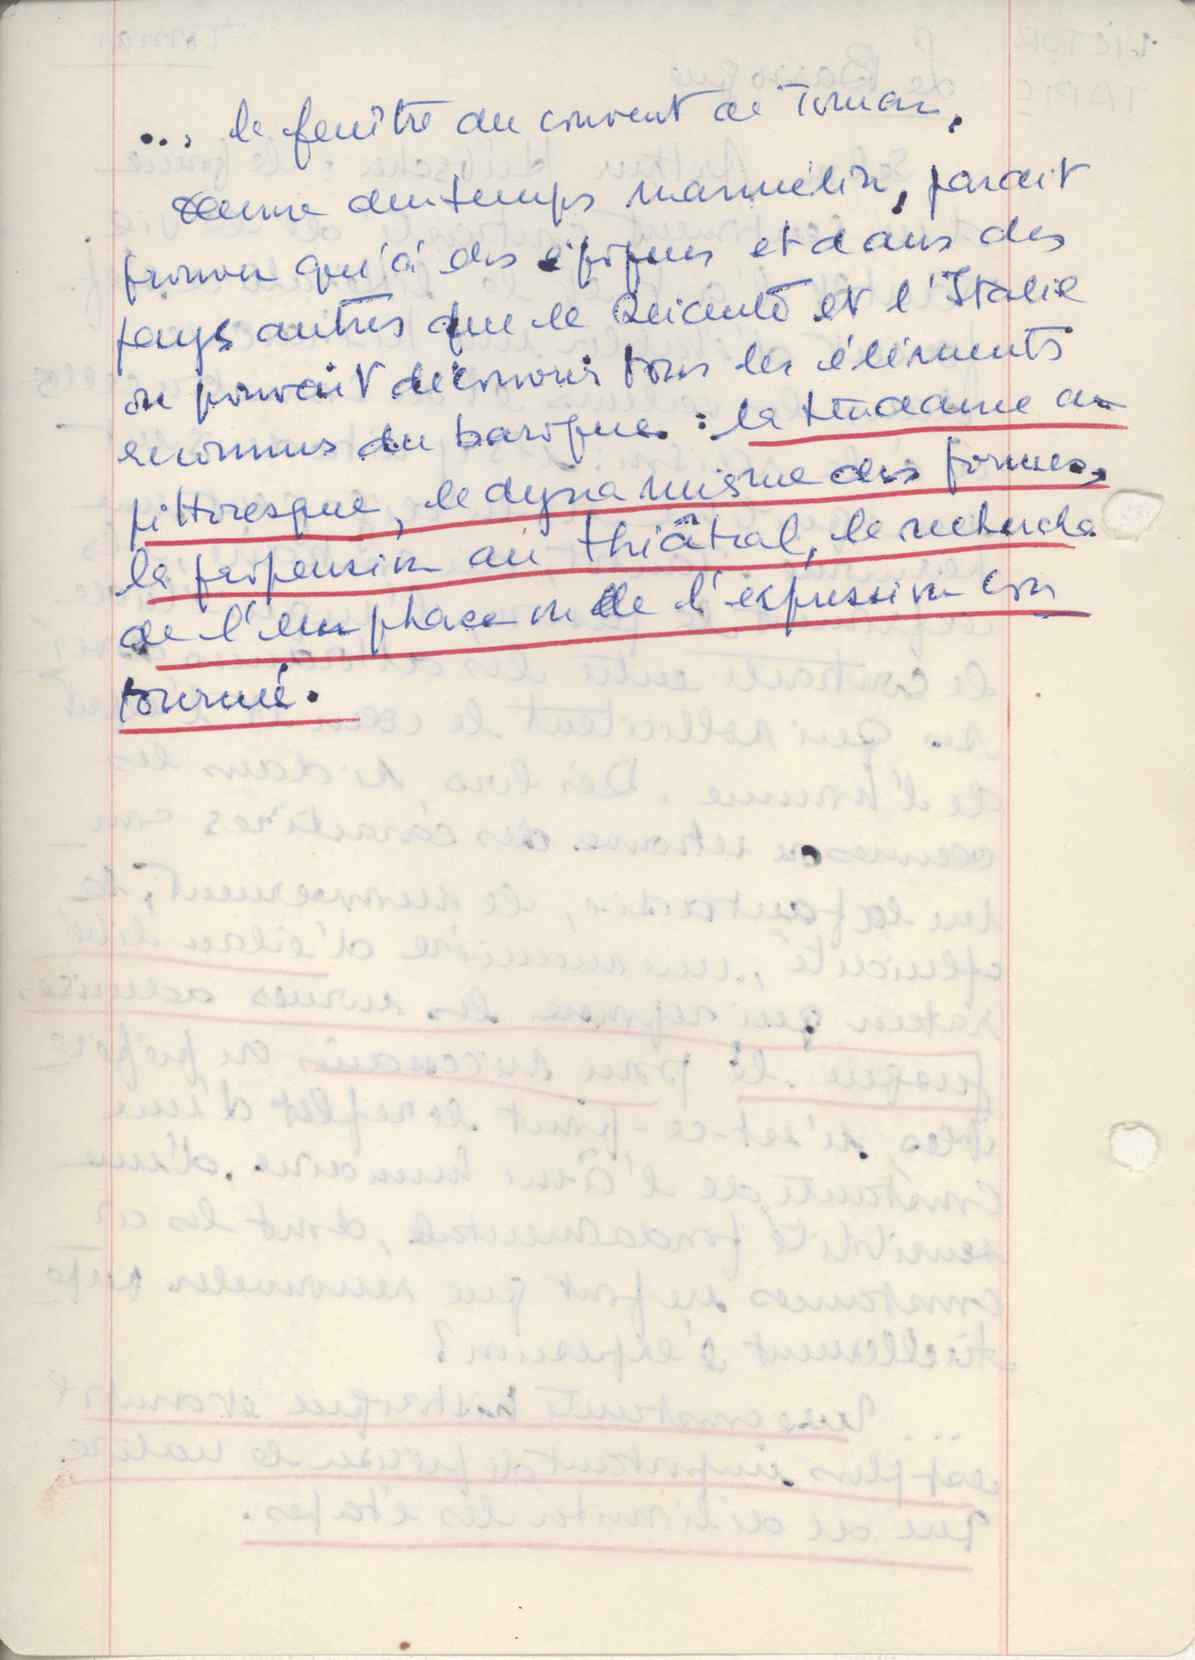 ... la fenêtre du couvent de Tomar,
œuvre du temps manuélin, parait
prouver qu'à des époques et dans des
pays autres que le Seicento et l'Italie
on pouvait découvrir tous les éléments
reconnus du baroque : la tendance au
pittoresque, le dynamisme des formes,
la propension au théâtral, la recherche
de l'emphase ou de l'expression con
tournée.